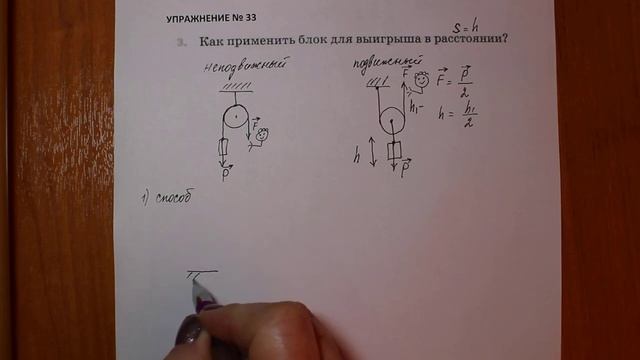 УПРАЖНЕНИЕ № 33
S = h
3. Как применить блок для выигрыша в расстоянии?
неподвижный
подвижный
F
P
F
h₁
h
P
F = P/2
h = h₁/2
1) способ